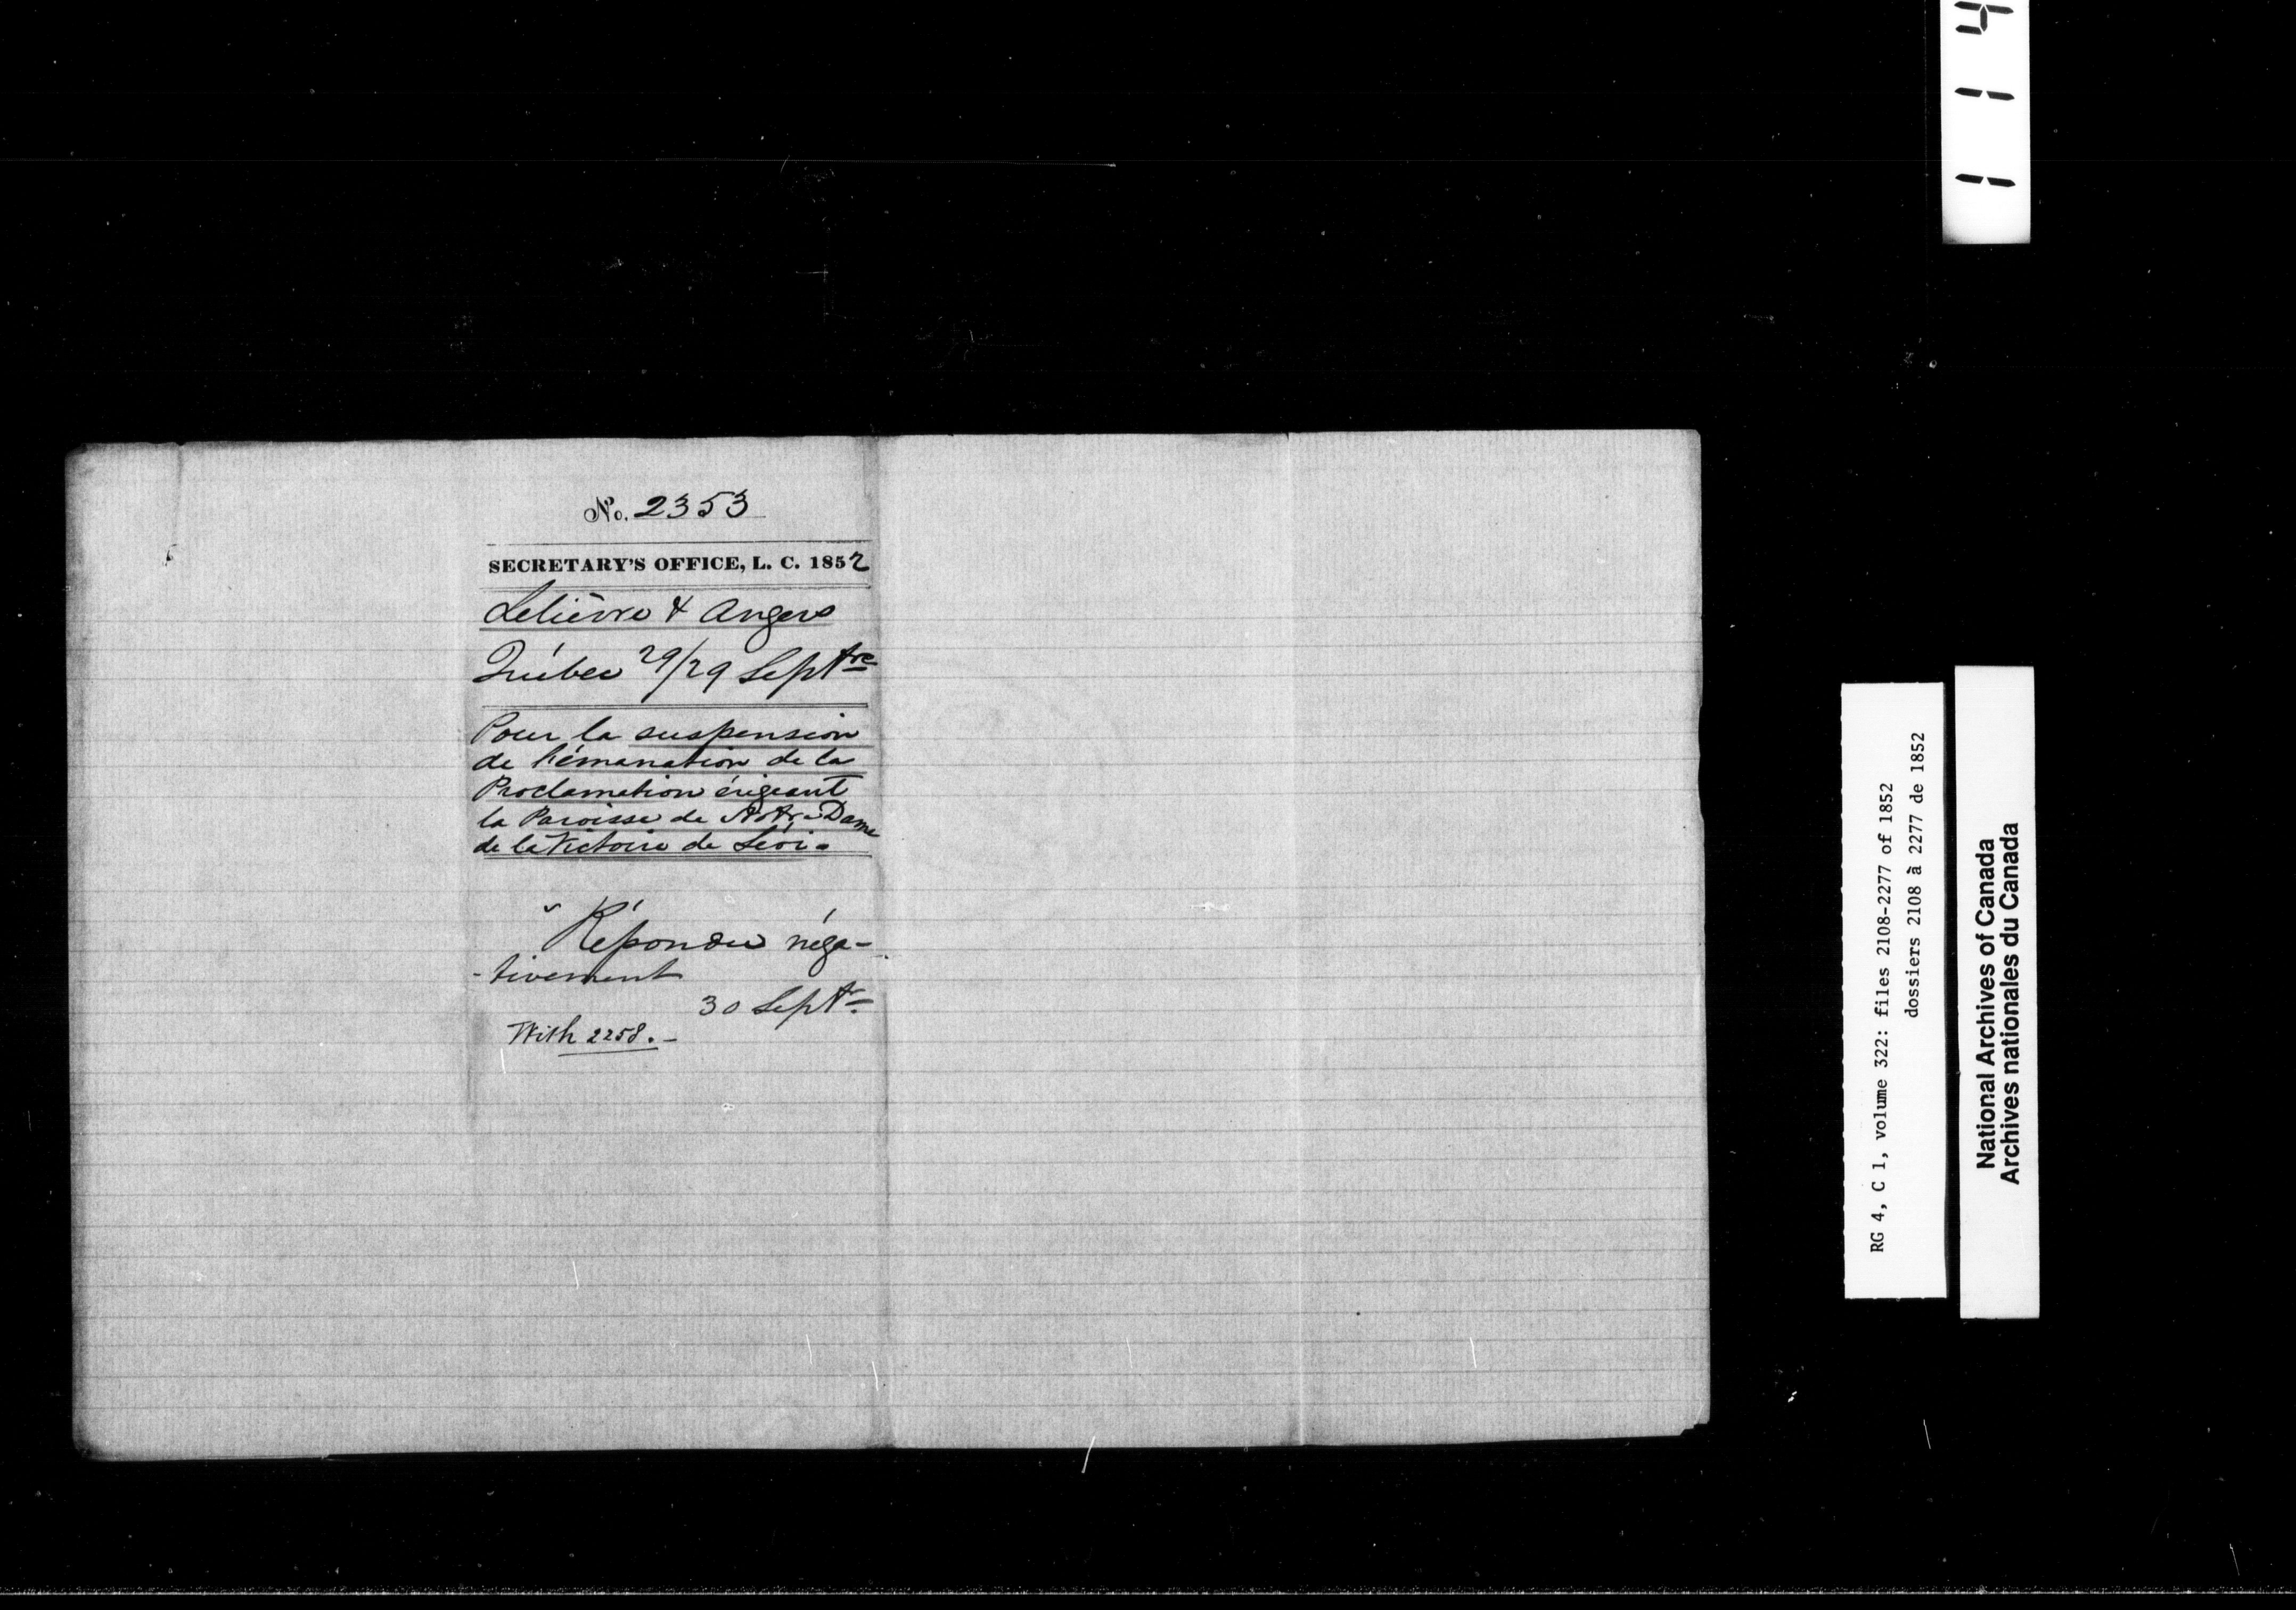 No. 2353
SECRETARY'S OFFICE, L. C. 1852
Lelièvre & Angers
Québec 29/29 Septre
Pour la suspension
de l'émanation de la
Proclamation érigeant
la Paroisse de Notre-Dame
de la Victoire de Lévi.
Répondu néga-
-tivement
30 Septr
With 2258.-
114
RG 4, C 1, volume 322: files 2108-2277 of 1852
dossiers 2108 à 2277 de 1852
National Archives of Canada
Archives nationales du Canada